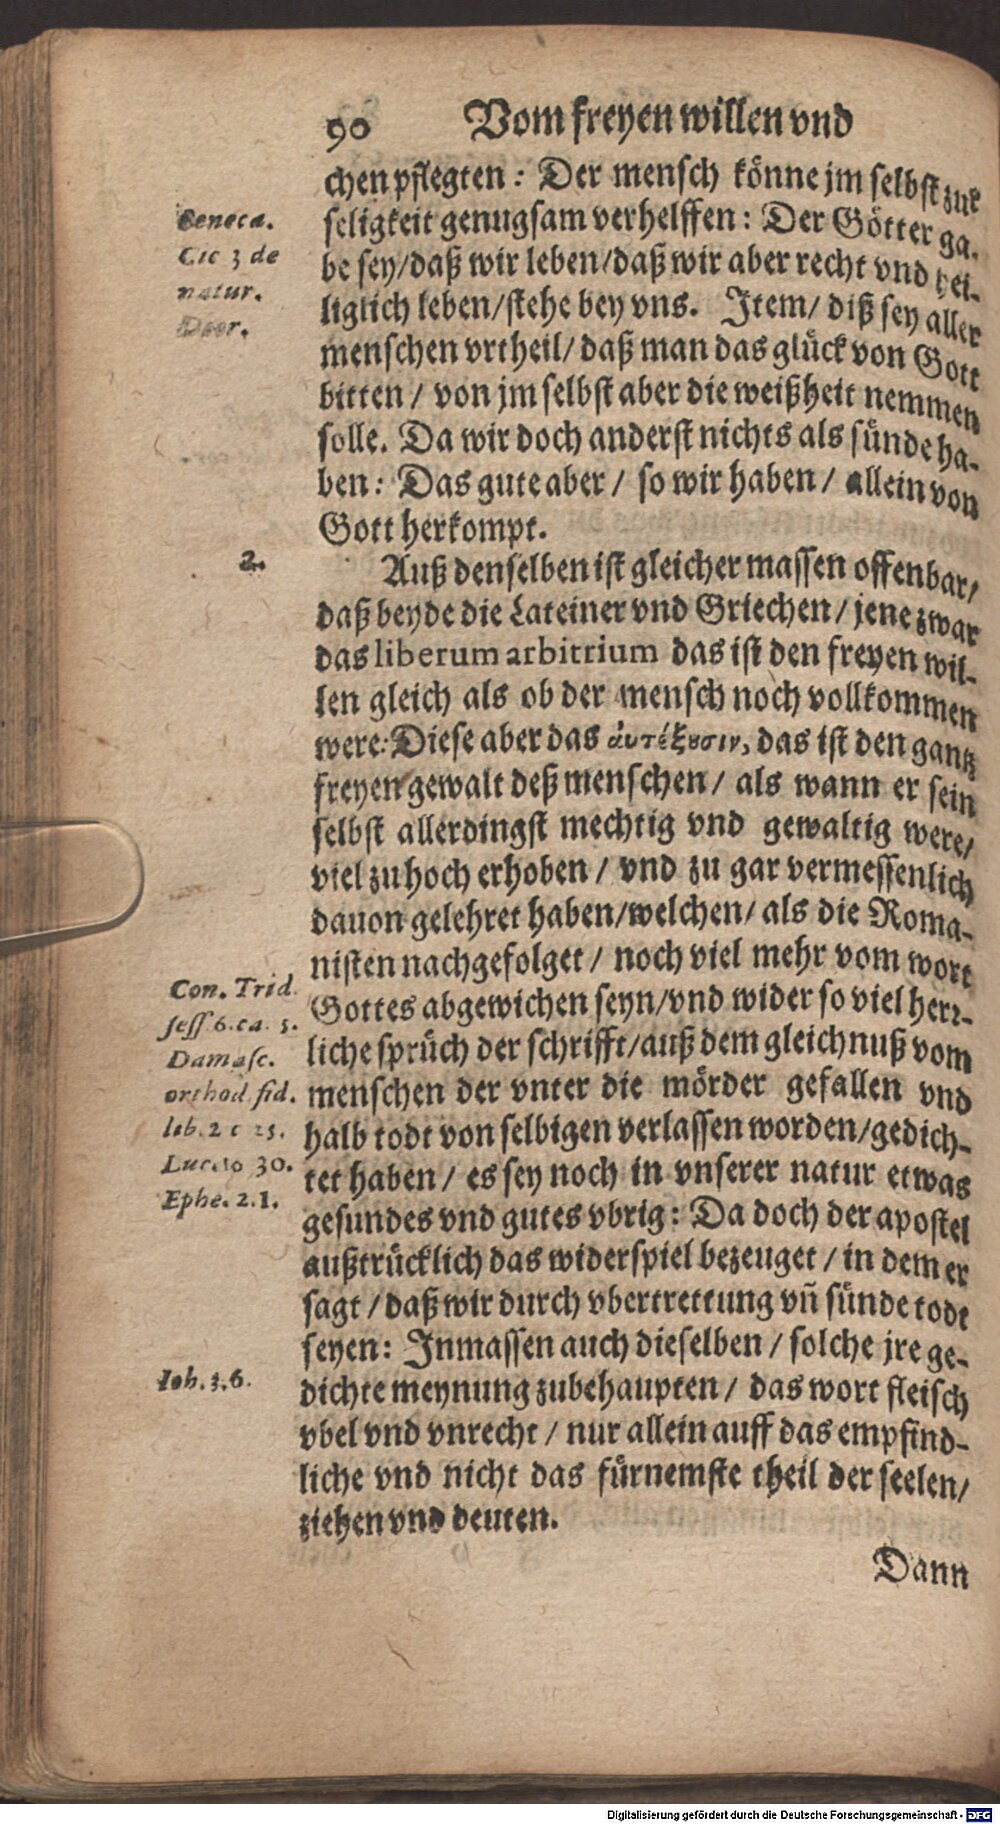 90 Vom freyen willen vnd
chen pflegten: Der mensch könne jm selbst zur
seligkeit genugsam verhelffen: Der Götter ga-
be sey/daß wir leben/daß wir aber recht vnd hei-
liglich leben/stehe bey vns. Item/ diß sey aller
menschen vrtheil/ daß man das glück von Gott
bitten / von jm selbst aber die weißheit nemmen
solle. Da wir doch anderst nichts als sünde ha-
ben: Das gute aber / so wir haben / allein von
Gott herkompt.
Seneca.
Cic 3 de
natur.
Deor.
2.
Auß denselben ist gleicher massen offenbar/
daß beyde die Lateiner vnd Griechen / jene zwar
das liberum arbitrium das ist den freyen wil-
len gleich als ob der mensch noch vollkommen
were: Diese aber das ἀυτέξουσιν, das ist den gantz
freyen gewalt deß menschen / als wann er sein
selbst allerdingst mechtig vnd gewaltig were/
viel zu hoch erhoben / vnd zu gar vermessenlich
dauon gelehret haben/welchen/ als die Roma-
nisten nachgefolget / noch viel mehr vom wort
Gottes abgewichen seyn/vnd wider so viel herr-
liche sprüch der schrifft/auß dem gleichnuß vom
menschen der vnter die mörder gefallen vnd
halb todt von selbigen verlassen worden/gedich-
tet haben / es sey noch in vnserer natur etwas
gesundes vnd gutes vbrig: Da doch der apostel
außtrücklich das widerspiel bezeuget / in dem er
sagt / daß wir durch vbertrettung vñ sünde todt
seyen: Inmassen auch dieselben / solche jre ge-
dichte meynung zubehaupten / das wort fleisch
vbel vnd vnrecht / nur allein auff das empfind-
liche vnd nicht das fürnemste theil der seelen/
ziehen vnd deuten.
Con. Trid.
sess 6. ca. 5.
Damasc.
orthod. fid.
lib. 2 c 25.
Luc. 10 30.
Ephe. 2. 1.
Ioh. 3. 6.
Dann
Digitalisierung gefördert durch die Deutsche Forschungsgemeinschaft - DFG